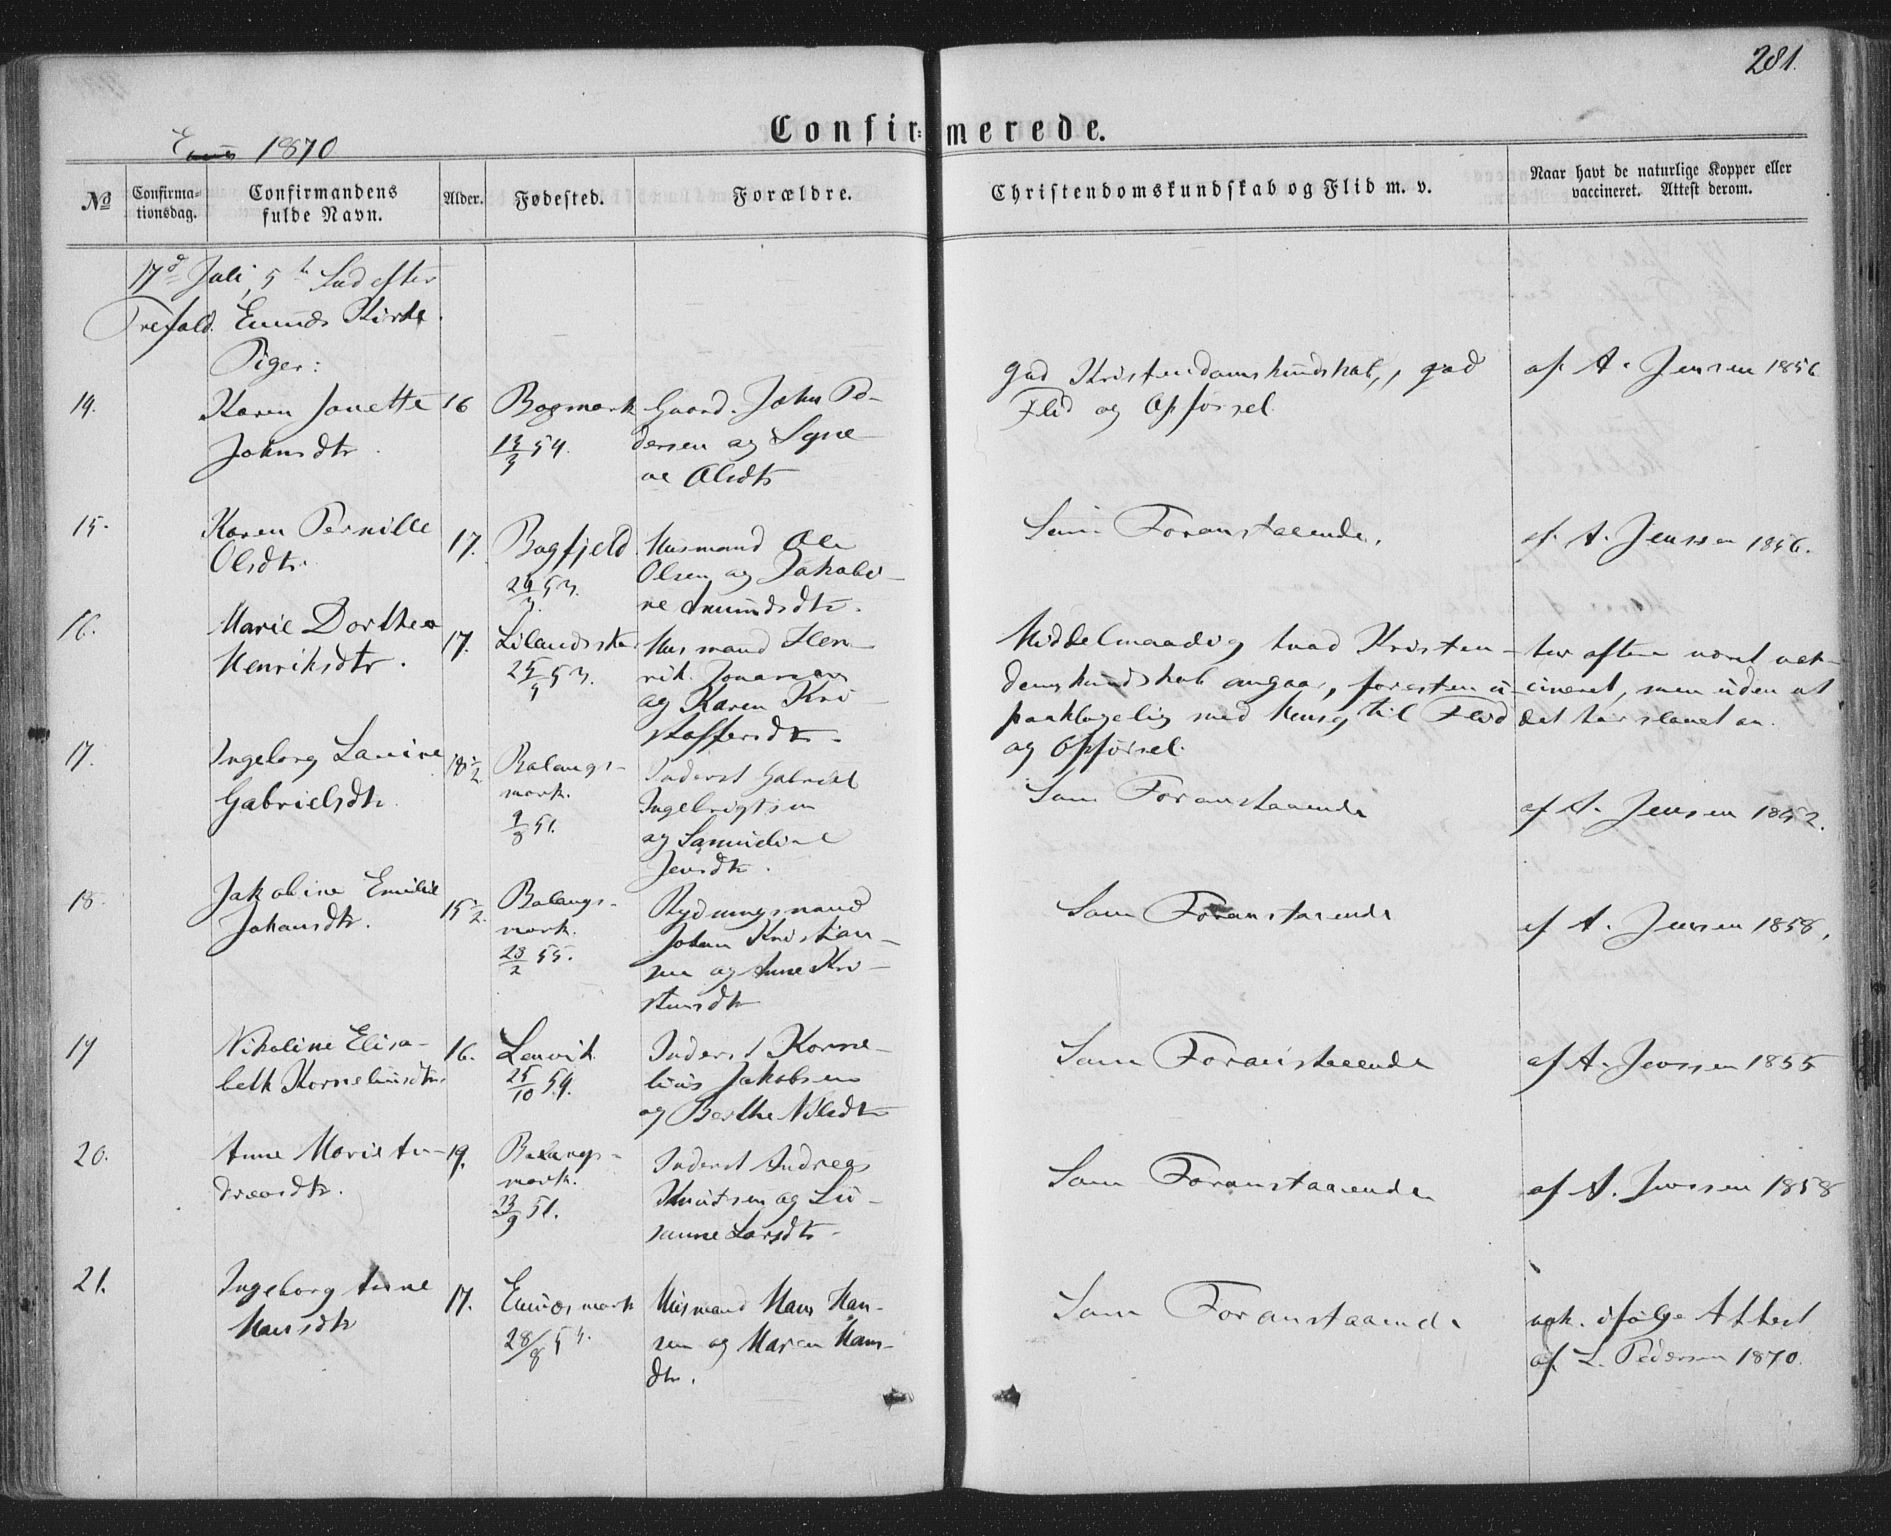 281.
Confirmerede.
1870
No
Confirma-
tionsdag.
Confirmandens
fulde Navn.
Alder.
Fødested.
Forældre.
Christendomskundskab og Flid m. v.
Naar havt de naturlige Kopper eller
vaccineret. Attest derom.
17d Juli, 5t Sud efter
Trefold. Evenæs Kirke.
Piger:
14.
Karen Janette
Johnsdtr.
16
Bogmark
13/3 54.
Gaard. John Pe-
dersen og Syne-
ve Olsdtr
god Kristendomskundskab, god
Flid og Opførsel.
af A. Jenssen 1856
15.
Karen Pernille
Olsdtr.
17.
Bogfjeld
24/3 53.
Husmand Ole
Olsen og Jakobi-
ne Amundsdtr.
Som Foranstaaende.
af A. Jenssen 1856.
16.
Marie Dorthea
Henriksdtr.
17.
Lilandsskr
25/5 53.
Husmand Hen-
rik Jonassen
og Karen Kri-
stoffersdtr.
Middelmaadig hvad Kristen-
domskundskab angaar, foresten u-
paaklagelig med Hensyn til Flid
og Opførsel.
har oftere været vak-
cineret, men uden at
det har slaaet an.
17.
Ingeborg Lavine
Gabrielsdtr.
18½
Balangs-
mark.
9/8 51.
Inderst Gabriel
Ingebrigtsen
og Samueline
Jensdtr.
Som Foranstaaende
af A. Jenssen 1852.
18.
Jakobine Emilie
Johansdtr.
15½
Balangs-
mark.
28/2 55.
Rydningsmand
Johan Kristian-
sen og Anne Kri-
stensdtr
Som Foranstaaende
af A. Jenssen 1858.
19
Nikoline Elisa-
beth Korneliusdtr.
16.
Lenvik
25/10 54.
Inderst Korne-
lius Jakobsen
og Berthe Nilsdtr
Som Foranstaaende
af A. Jenssen 1855
20.
Anne Marie An-
dreasdtr.
19.
Balangs-
mark.
23/9 51.
Inderst Andreas
Knutsen og Su-
sanne Larsdtr.
Som Foranstaaende
af A. Jenssen 1858
21.
Ingeborg Anne
Hansdtr
17.
Evenæsmark
28/8 53.
Husmand Hans Han-
sen og Maren Hans-
dtr.
Som Foranstaaende
vak. ifølge Attest
af L. Pedersen 1870.